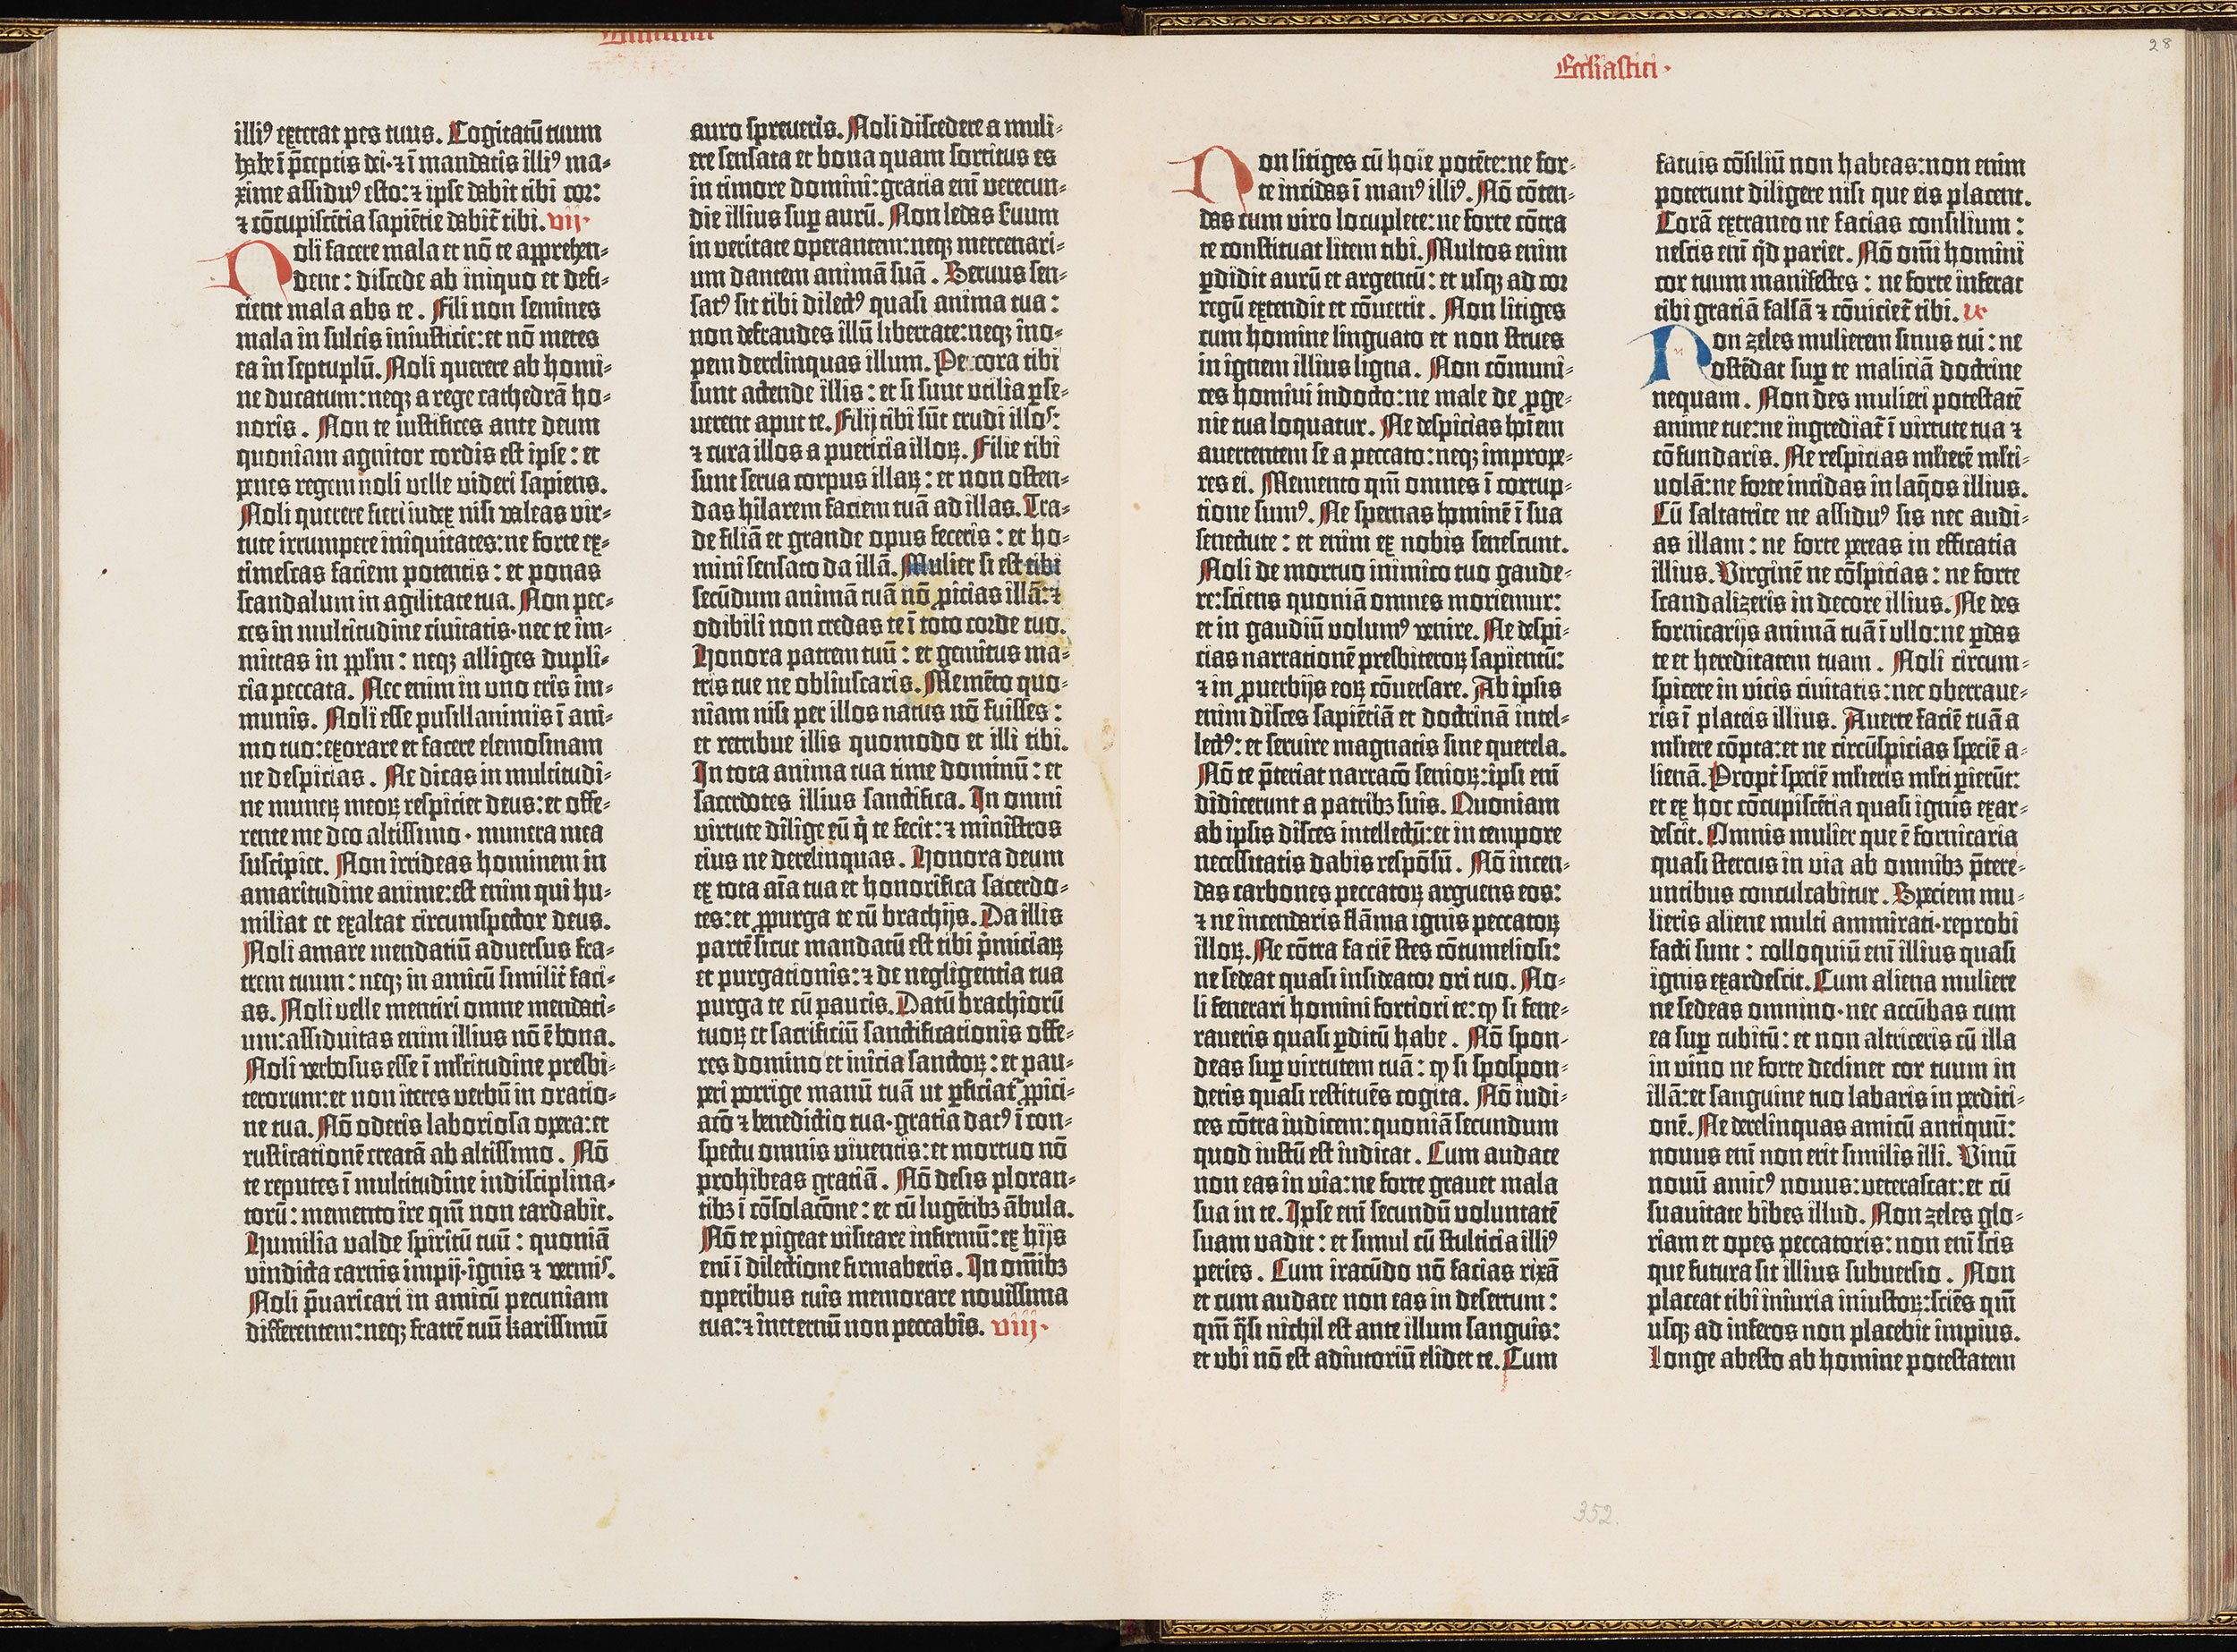 Ecclīastici.
28
illiꝰ exterat pes tuus. Cogitatū tuum
habe ī p̄ceptis dei·⁊ ī mandatis illiꝰ ma-
xime assiduꝰ esto:⁊ ipse dabit tibi cor:
⁊ cōcupiscētia sapiētie dabit̄ tibi. vij·
Noli facere mala et nō te apprehen-
dent: discede ab iniquo et defi-
cient mala abs te. Fili non semines
mala in sulcis iniusticie:et nō metes
ea in septuplū. Noli querere ab homi-
ne ducatum:neqꝫ a rege cathedrā ho-
noris. Non te iustifices ante deum
quoniam agnitor cordis est ipse: et
penes regem noli velle videri sapiens.
Noli querere fieri iudex nisi valeas vir-
tute irrumpere iniquitates:ne forte ex-
timescas faciem potentis: et ponas
scandalum in agilitate tua. Non pec-
ces in multitudine ciuitatis·nec te im-
mittas in pp̄lm: neqꝫ alliges dupli-
cia peccata. Nec enim in vno eris im-
munis. Noli esse pusillanimis ī ani-
mo tuo:exorare et facere elemosinam
ne despicias. Ne dicas in multitudi-
ne munerꝝ meorꝝ respiciet deus:et offe-
rente me deo altissimo· munera mea
suscipiet. Non irrideas hominem in
amaritudine anime:est enim qui hu-
miliat et exaltat circumspector deus.
Noli amare mendatiū aduersus fra-
trem tuum: neqꝫ in amicū similit̄ faci-
as. Noli velle mentiri omne mendati-
um:assiduitas enim illius nō ē bona.
Noli verbosus esse ī ml̄titudine presbi-
terorum:et non iteres verbū in oratio-
ne tua. Nō oderis laboriosa opera:et
rusticationē creatā ab altissimo. Nō
te reputes ī multitudine indisciplina-
torū: memento ire qm̄ non tardabit.
Humilia valde spiritū tuū: quoniā
vindicta carnis impij·ignis ⁊ vermis.
Noli p̄uaricari in amicū pecuniam
differentem:neqꝫ fratrē tuū karissimū
auro spreueris. Noli discedere a muli-
ere sensata et bona quam sortitus es
in timore domini:gratia enī verecun-
die illius suꝑ aurū. Non ledas seruum
in veritate operantem:neqꝫ mercenari-
um dantem animā suā. Seruus sen-
satꝰ sit tibi dilectꝰ quasi anima tua:
non defraudes illū libertate:neqꝫ ino-
pem derelinquas illum. Pecora tibi
sunt actende illis: et si sunt vtilia ꝑse-
uerent aput te. Filij tibi sūt erudi illos:
⁊ cura illos a puericia illorꝝ. Filie tibi
sunt serua corpus illarꝝ: et non osten-
das hilarem faciem tuā ad illas. Tra-
de filiā et grande opus feceris: et ho-
mini sensato da illā. Mulier si est tibi
secūdum animā tuā nō ꝓicias illā:⁊
odibili non credas te ī toto corde tuo.
Honora patrem tuū: et gemitus ma-
tris tue ne obliuiscaris. Memēto quo-
niam nisi per illos natus nō fuisses:
et retribue illis quomodo et illi tibi.
In tota anima tua time dominū: et
sacerdotes illius sanctifica. In omni
virtute dilige eū q̄ te fecit:⁊ ministros
eius ne derelinquas. Honora deum
ex tota aīa tua et honorifica sacerdo-
tes:et ꝓpurga te cū brachijs. Da illis
partē sicut mandatū est tibi p̄miciarꝝ
et purgationis:⁊ de negligentia tua
purga te cū paucis. Datū brachiorū
tuorꝝ et sacrificiū sanctificationis offe-
res domino et inicia sanctorꝝ: et pau-
peri porrige manū tuā ut ꝑficiat̄ ꝓpici-
acō ⁊ benedictio tua·gratia datꝰ ī con-
spectu omnis viuentis:et mortuo nō
prohibeas gratiā. Nō desis ploran-
tibꝫ ī cōsolacōne: et cū lugētibꝫ ābula.
Nō te pigeat visitare infirmū:ex hijs
enī ī dilectione firmaberis. In om̄ibꝫ
operibus tuis memorare nouissima
tua:⁊ ineternū non peccabis. viij·
Non litiges cū hoīe potēte:ne for-
te incidas ī manꝰ illiꝰ. Nō cōten-
das cum viro locuplete:ne forte cōtra
te constituat litem tibi. Multos enim
ꝑdidit aurū et argentū: et vsqꝫ ad cor
regū extendit et cōuertit. Non litiges
cum homine linguato et non strues
in ignem illius ligna. Non cōmuni-
ces homini indocto:ne male de ꝓge-
nie tua loquatur. Ne despicias hoīem
auertentem se a peccato:neqꝫ impropre-
res ei. Memento qm̄ omnes ī corrup-
tione sumꝰ. Ne spernas hominē ī sua
senectute: et enim ex nobis senescunt.
Noli de mortuo inimico tuo gaude-
re:sciens quoniā omnes moriemur:
et in gaudiū volumꝰ venire. Ne despi-
cias narrationē presbiterorꝝ sapientū:
⁊ in ꝓuerbijs eorꝝ cōuersare. Ab ipsis
enim disces sapiētiā et doctrinā intel-
lectꝰ: et seruire magnatis sine querela.
Nō te p̄tereat narracō seniorꝝ:ipsi enī
didicerunt a patribꝫ suis. Quoniam
ab ipsis disces intellectū:et in tempore
necessitatis dabis respōsū. Nō incen-
das carbones peccatorꝝ arguens eos:
⁊ ne incendaris flāma ignis peccatorꝝ
illorꝝ. Ne cōtra faciē stes cōtumeliosi:
ne sedeat quasi insidiator ori tuo. No-
li fenerari homini fortiori te:ꝙ si fene-
raueris quasi ꝑditū habe. Nō spon-
deas suꝑ virtutem tuā: ꝙ si spopon-
deris quasi restituēs cogita. Nō iudi-
ces cōtra iudicem:quoniā secundum
quod iustū est iudicat. Cum audace
non eas in via:ne forte grauet mala
sua in te. Ipse enī secundū voluntatē
suam vadit: et simul cū stulticia illiꝰ
peries. Cum iracūdo nō facias rixā
et cum audace non eas in desertum:
qm̄ q̄si nichil est ante illum sanguis:
et vbi nō est adiutoriū elidet te. Cum
fatuis cōsiliū non habeas:non enim
poterunt diligere nisi que eis placent.
Corā extraneo ne facias consilium:
nescis enī qͥd pariet. Nō om̄i homini
cor tuum manifestes: ne forte inferat
tibi gratiā falsā ⁊ cōuiciet̄ tibi. ix
Non zeles mulierem sinus tui: ne
ostēdat suꝑ te maliciā doctrine
nequam. Non des mulieri potestatē
anime tue:ne ingrediat̄ ī virtute tua ⁊
cōfundaris. Ne respicias ml̄ierē ml̄ti-
uolā:ne forte incidas in laq̄os illius.
Cū saltatrice ne assiduꝰ sis nec audi-
as illam: ne forte pereas in efficatia
illius. Virginē ne cōspicias: ne forte
scandalizeris in decore illius. Ne des
fornicarijs animā tuā ī vllo:ne ꝑdas
te et hereditatem tuam. Noli circum-
spicere in vicis ciuitatis:nec oberraue-
ris ī plateis illius. Auerte faciē tuā a
ml̄iere cōpta:et ne circūspicias speciē a-
lienā. Propt̄ speciē ml̄ieris ml̄ti ꝑierūt:
et ex hoc cōcupiscētia quasi ignis exar-
descit. Omnis mulier que ē fornicaria
quasi stercus in via ab omnibꝫ p̄tere-
untibus conculcabitur. Speciem mu-
lieris aliene multi ammirati·reprobi
facti sunt: colloquiū enī illius quasi
ignis exardescit. Cum aliena muliere
ne sedeas omnino·nec accūbas cum
ea suꝑ cubitū: et non altriceris cū illa
in vino ne forte declinet cor tuum in
illā:et sanguine tuo labaris in perditi-
onē. Ne derelinquas amicū antiquū:
nouus enī non erit similis illi. Vinū
nouū amicꝰ nouus:veterascat:et cū
suauitate bibes illud. Non zeles glo-
riam et opes peccatoris:non enī scis
que futura sit illius subuersio. Non
placeat tibi iniuria iniustorꝝ:sciēs qm̄
vsqꝫ ad inferos non placebit impius.
Longe abesto ab homine potestatem
352.